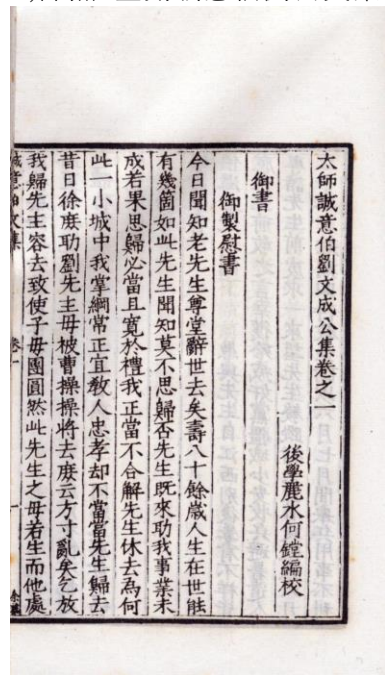 太師誠意伯劉文成公集卷之一
後學麗水何鏜編校
御書
御製慰書
今日聞知老先生尊堂辭世去矣壽八十餘歲人生在世能
有幾箇如此先生聞知莫不思歸否先生既來助我事業未
成若果思歸必當且寬於禮我正當不合解先生休去為何
此一小城中我掌綱常正宜教人忠孝却不當當先生歸去
昔日徐庶助劉先主母被曹操操將去庶云方寸亂矣乞放
我歸先主容去致使子母團圓然此先生之母若生而他處
誠意伯文集
卷一
一